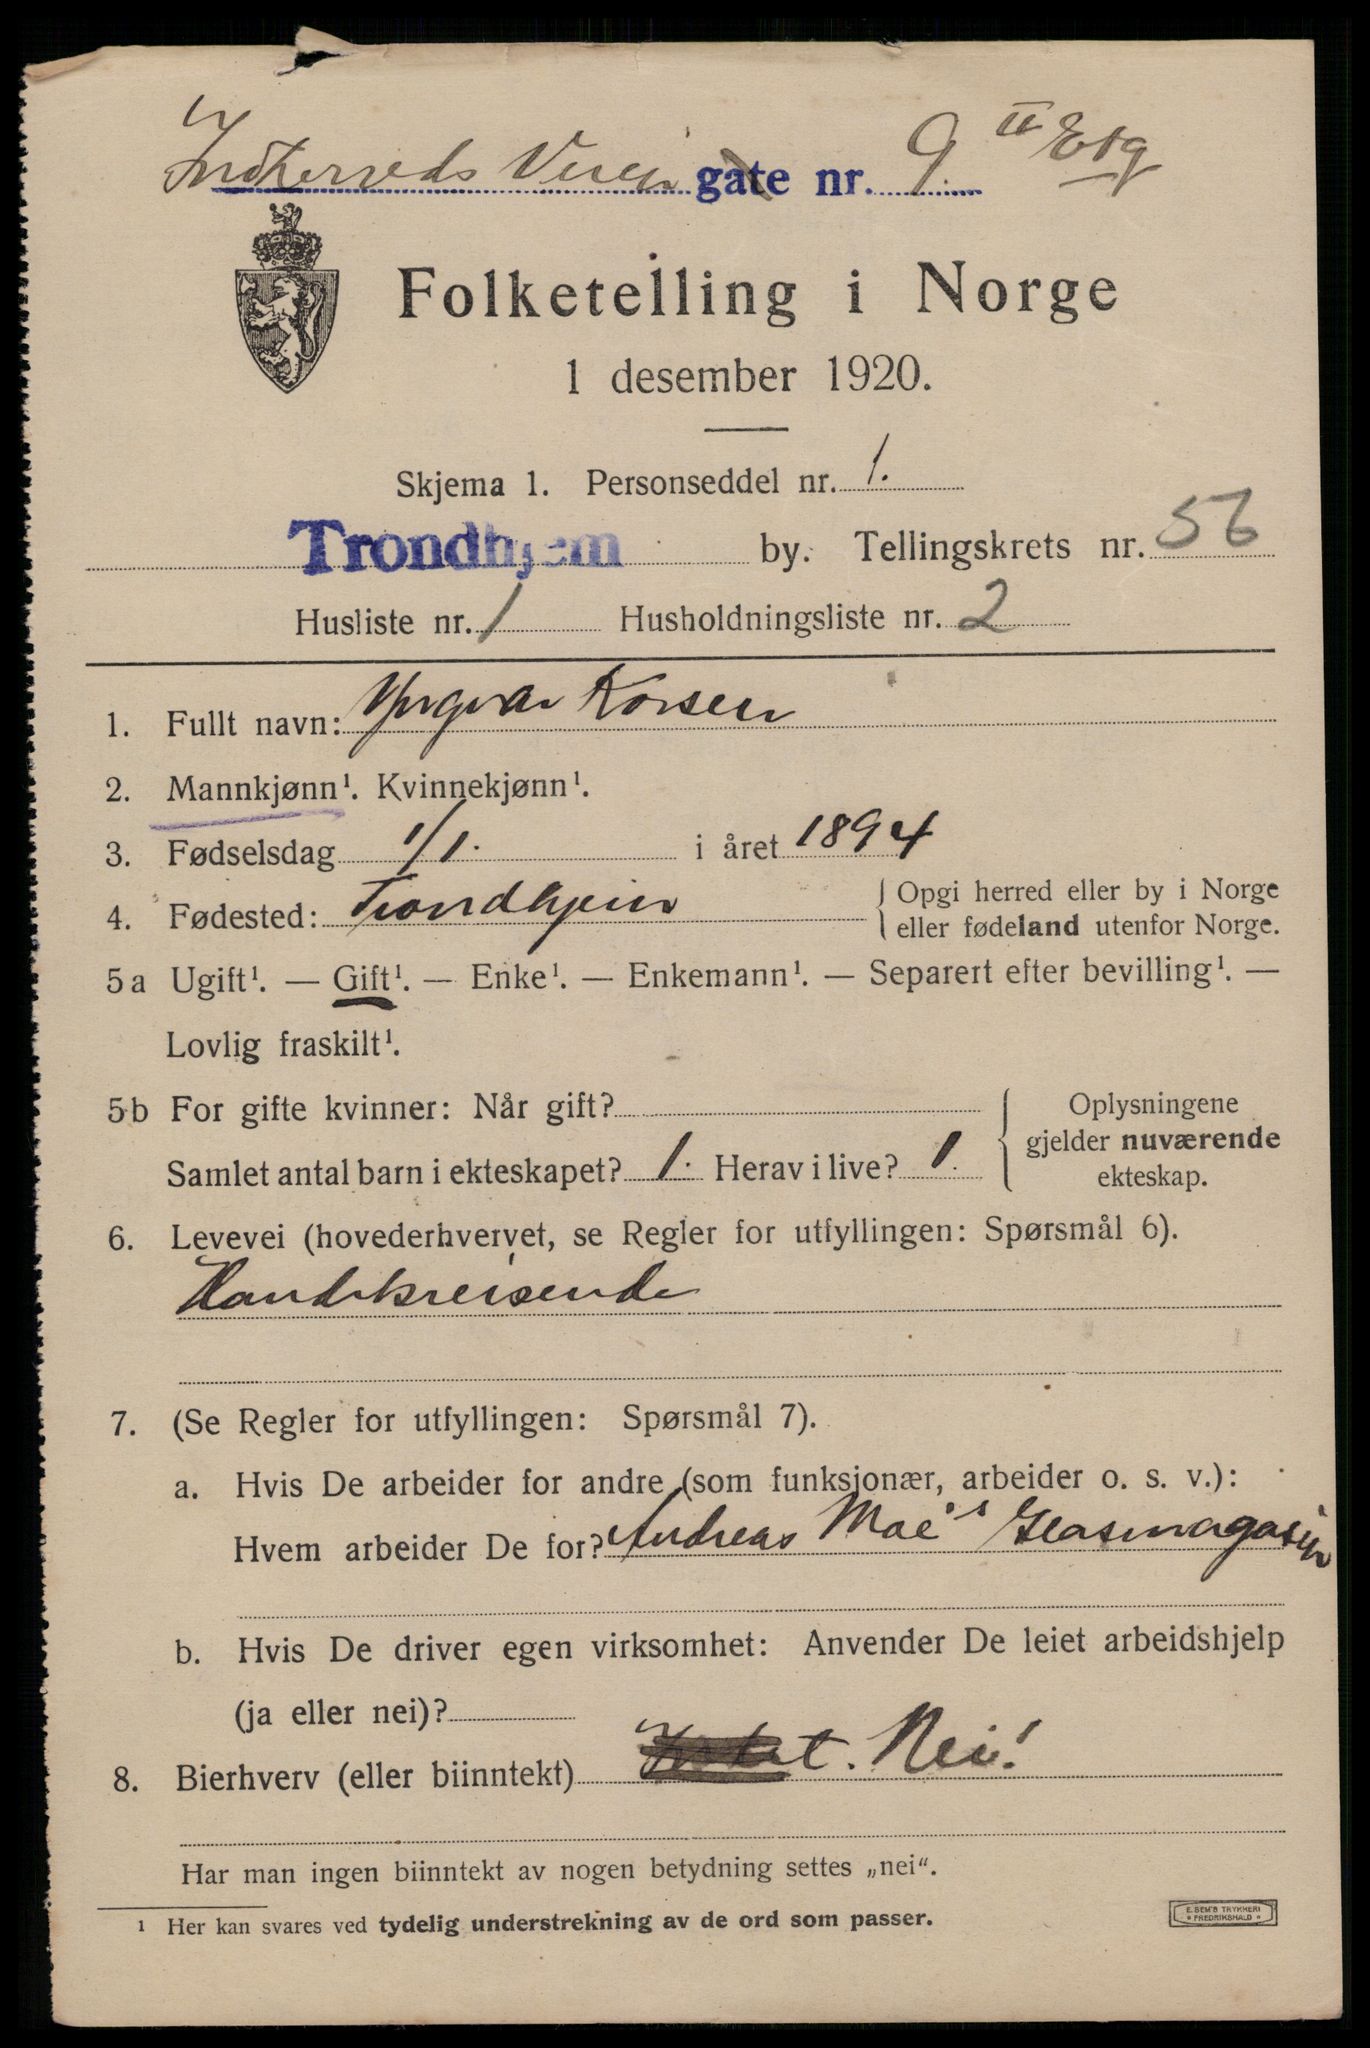 Indherreds Veien gate nr. 9. II Etg
Folketelling i Norge
1 desember 1920.
Skjema 1. Personseddel nr. 1.
Trondhjem by. Tellingskrets nr. 56
Husliste nr. 1 Husholdningsliste nr. 2
1. Fullt navn: Yngvar Korsen
2. Mannkjønn¹. Kvinnekjønn¹.
3. Fødselsdag 1/1. i året 1894
4. Fødested: Trondhjem { Opgi herred eller by i Norge
eller fødeland utenfor Norge.
5a Ugift¹. — Gift¹. — Enke¹. — Enkemann¹. — Separert efter bevilling¹. —
Lovlig fraskilt¹.
5b For gifte kvinner: Når gift?
Samlet antal barn i ekteskapet? 1. Herav i live? 1.
{ Oplysningene
gjelder nuværende
ekteskap.
6. Levevei (hovederhvervet, se Regler for utfyllingen: Spørsmål 6).
Handelsreisende
7. (Se Regler for utfyllingen: Spørsmål 7).
a. Hvis De arbeider for andre (som funksjonær, arbeider o. s. v.):
Hvem arbeider De for? Andreas Moe's Glasmagasin
b. Hvis De driver egen virksomhet: Anvender De leiet arbeidshjelp
(ja eller nei)?
8. Bierhverv (eller biinntekt) Nei!
Har man ingen biinntekt av nogen betydning settes „nei“.
¹ Her kan svares ved tydelig understrekning av de ord som passer.
E. SEM'S TRYKKERI
* FREDRIKSHALD *